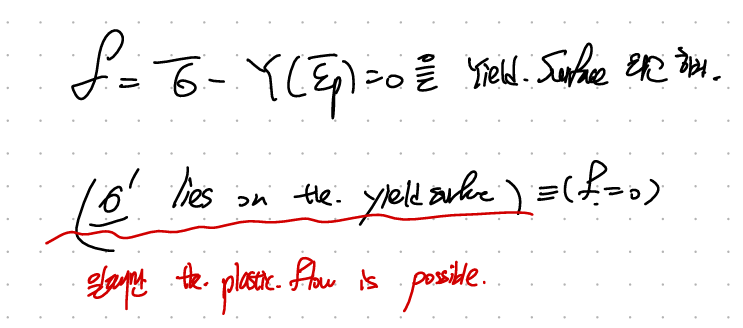 f = σ̄ - Y(ε̄p) = 0 을 Yield. Surface 라고 하며.
(σ' lies on the. yield surface) ≡ (f = 0)
the. plastic. flow is possible.